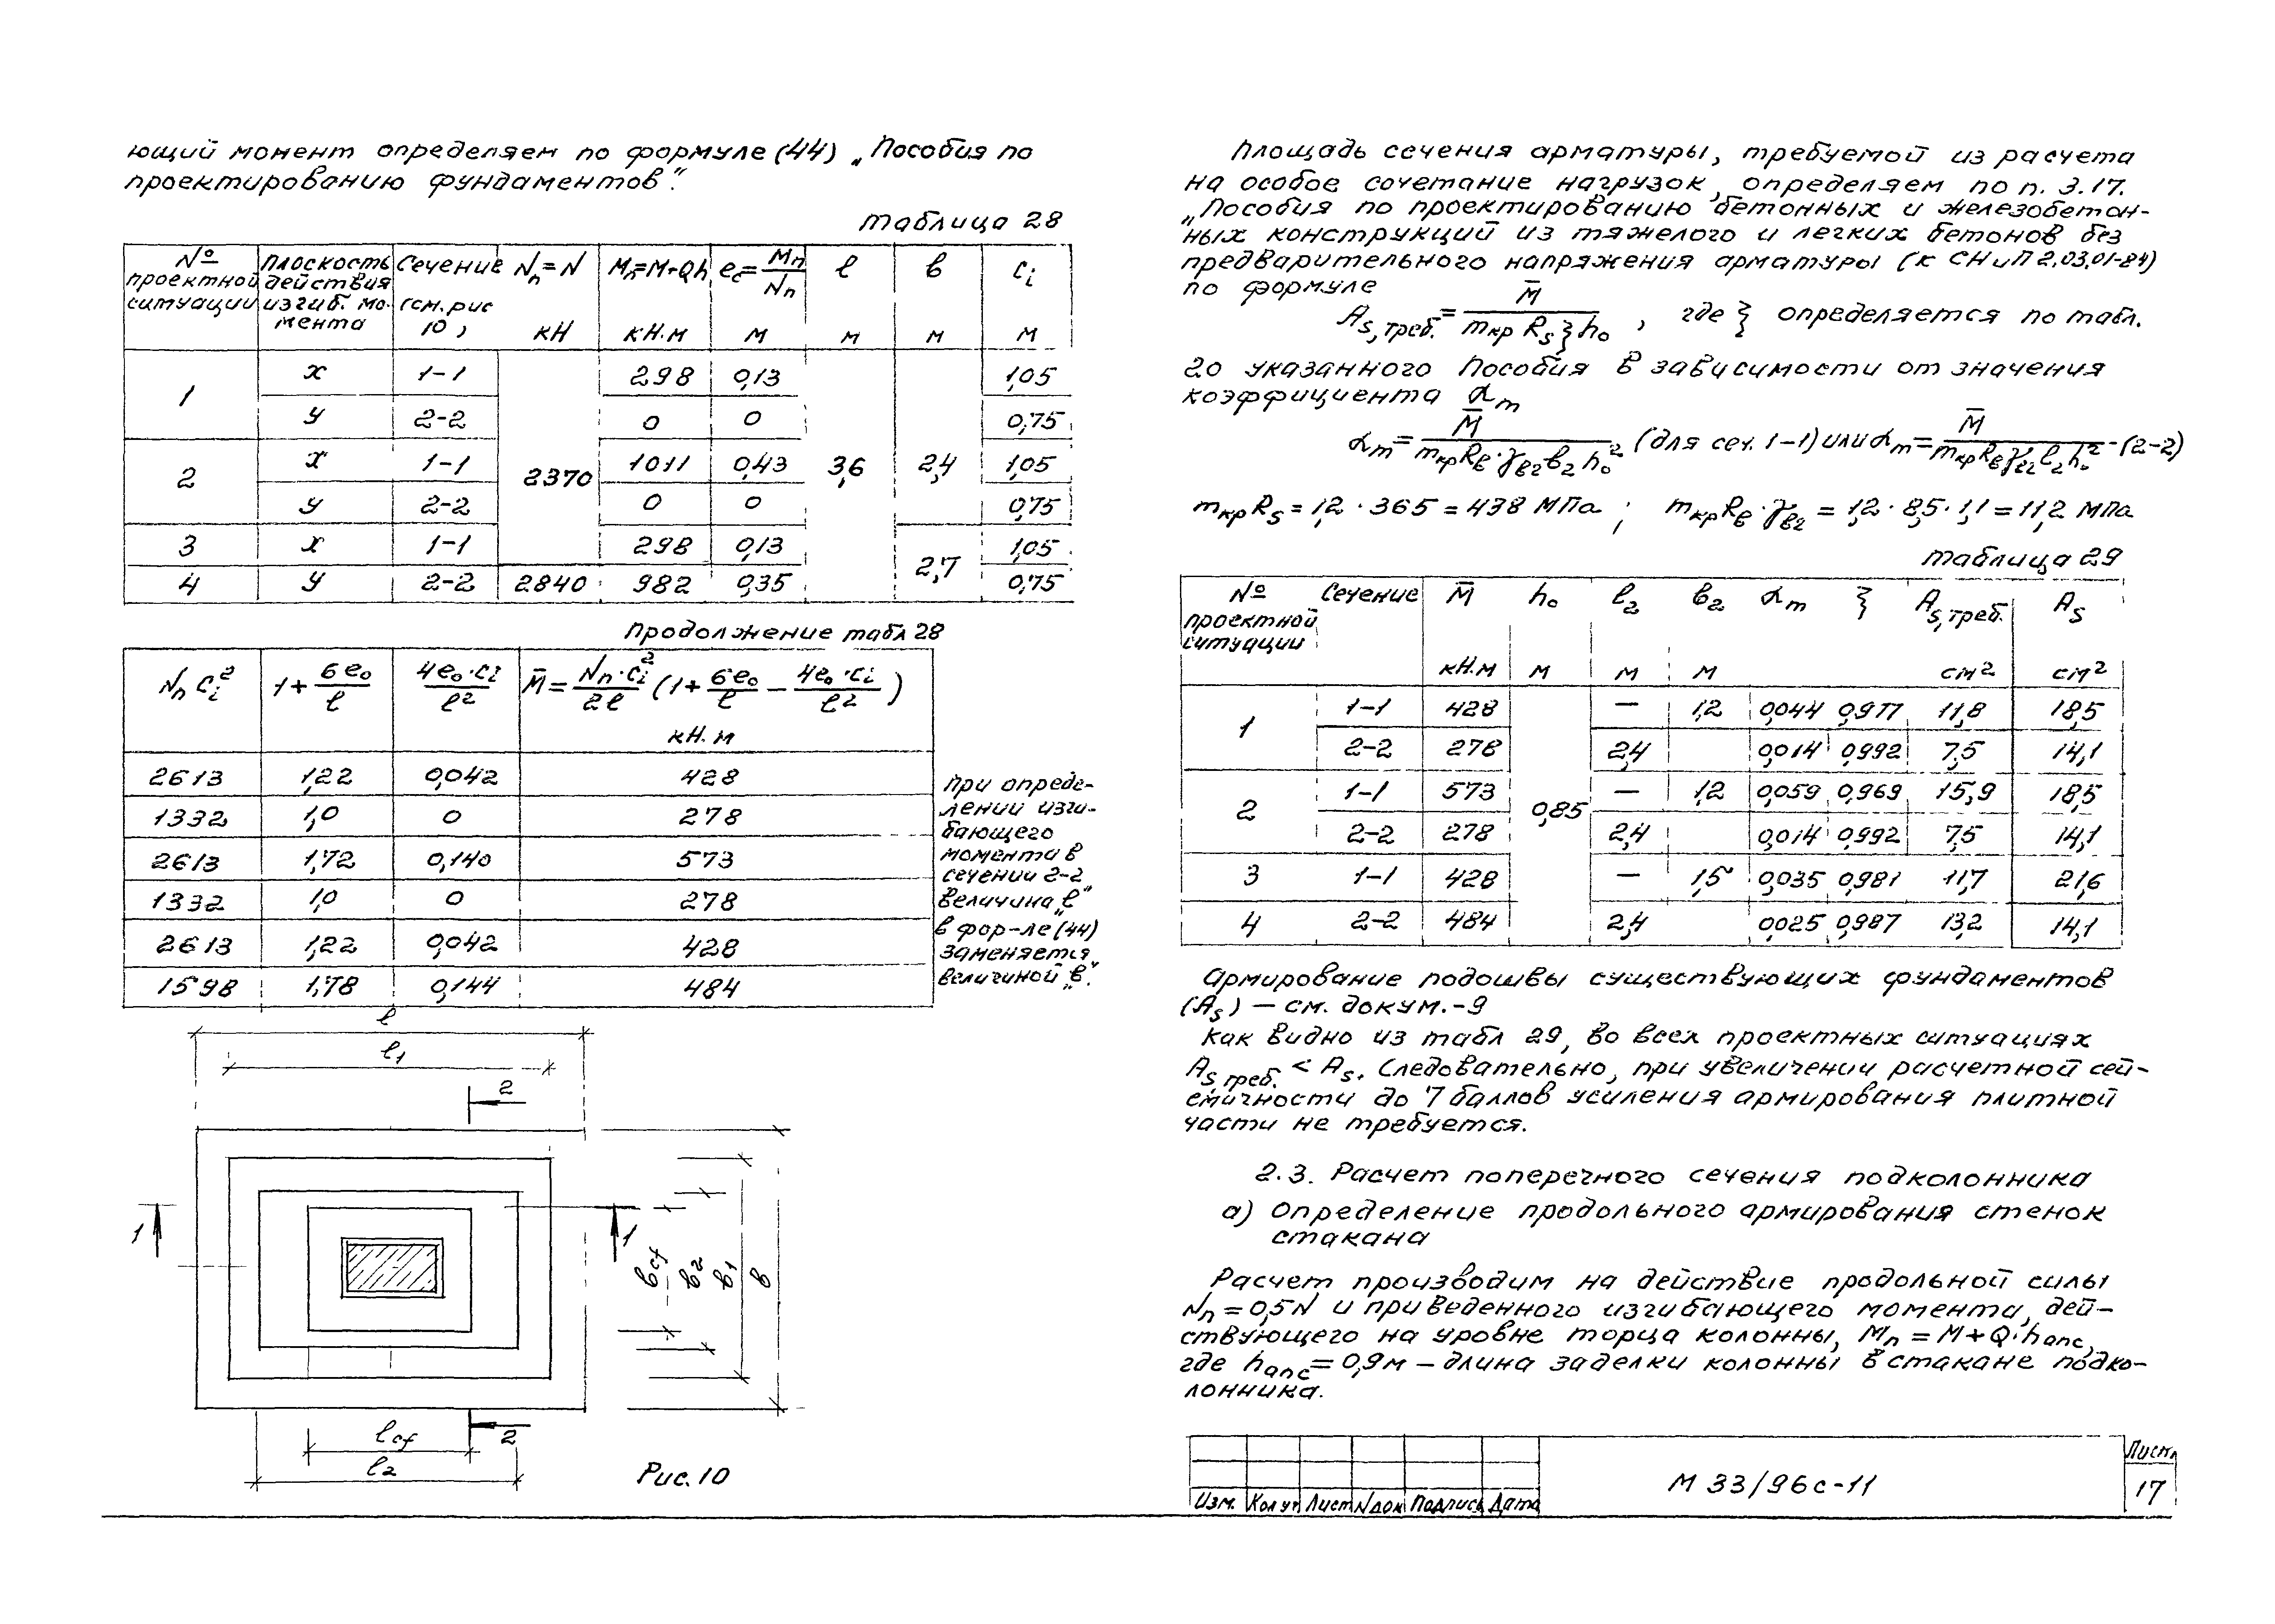 ющий момент определяем по формуле (44) „Пособия по
проектированию фундаментов".
таблица 28
№ проектной ситуации | плоскость действия изгиб. момента | Сечение (см. рис 10) | Nп=N кН | Mп=M+Qh кН.м | eо=Mп/Nп м | l м | в м | ci м
1 | x | 1-1 | 2370 | 298 | 0,13 | 3,6 | 2,4 | 1,05
y | 2-2 | 0 | 0 | 0,75
2 | x | 1-1 | 1011 | 0,43 | 1,05
y | 2-2 | 0 | 0 | 0,75
3 | x | 1-1 | 298 | 0,13 | 2,7 | 1,05
4 | y | 2-2 | 2840 | 982 | 0,35 | 0,75
продолжение табл 28
Nп ci² | 1+6eо/l | 4eо·ci/l² | M̄=Nп·ci²/2l (1+6eо/l − 4eо·ci/l²) кН.м
2613 | 1,22 | 0,042 | 428
1332 | 1,0 | 0 | 278
2613 | 1,72 | 0,140 | 573
1332 | 1,0 | 0 | 278
2613 | 1,22 | 0,042 | 428
1598 | 1,78 | 0,144 | 484
при опреде-
лении изги-
бающего
момента в
сечении 2-2
величина „l"
в фор-ле (44)
заменяется
величиной „в".
l
l1
2
1
1
вcf
в2
в1
в
lcf
2
l2
Рис. 10
Площадь сечения арматуры, требуемой из расчета
на особое сочетание нагрузок, определяем по п. 3.17.
„Пособия по проектированию бетонных и железобетон-
ных конструкций из тяжелого и легких бетонов без
предварительного напряжения арматуры (к СНиП 2.03.01-84)
по формуле
As,треб.=M̄/(mкр Rs ξ hо), где ξ определяется по табл.
20 указанного Пособия в зависимости от значения
коэффициента αm
αm=M̄/(mкрRв·γв2в2hо²) (для сеч. 1-1) или αm=M̄/(mкрRвγв2l2hо²) - (2-2)
mкрRs=1,2·365=438 МПа ; mкрRв·γв2=1,2·8,5·1,1=11,2 МПа
таблица 29
№ проектной ситуации | Сечение | M̄ кН.м | hо м | l2 м | в2 м | αm | ξ | As,треб. см² | As см²
1 | 1-1 | 428 | 0,85 | — | 1,2 | 0,044 | 0,977 | 11,8 | 18,5
2-2 | 278 | 2,4 | 0,014 | 0,992 | 7,5 | 14,1
2 | 1-1 | 573 | — | 1,2 | 0,059 | 0,969 | 15,9 | 18,5
2-2 | 278 | 2,4 | 0,014 | 0,992 | 7,5 | 14,1
3 | 1-1 | 428 | — | 1,5 | 0,035 | 0,981 | 11,7 | 21,6
4 | 2-2 | 484 | 2,4 | 0,025 | 0,987 | 13,2 | 14,1
Армирование подошвы существующих фундаментов
(As) — см. докум.-9
Как видно из табл 29, во всех проектных ситуациях
As,треб. < As. Следовательно, при увеличении расчетной сей-
смичности до 7 баллов усиления армирования плитной
части не требуется.
2.3. Расчет поперечного сечения подколонника
а) Определение продольного армирования стенок
стакана
Расчет производим на действие продольной силы
Nп=0,5N и приведенного изгибающего момента, дей-
ствующего на уровне торца колонны, Mп=M+Q·hапс,
где hапс=0,9м – длина заделки колонны в стакане подко-
лонника.
Изм. Кол уч Лист Nдок Подпись Дата
М 33/96с-11
Лист
17